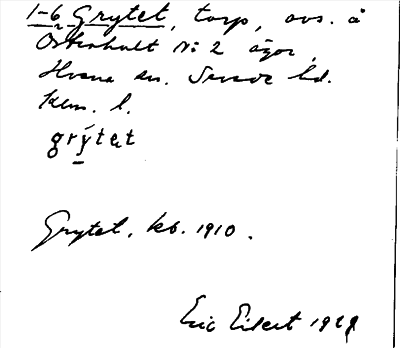 1-6 Grytet, torp, avs. å
Österhult No 2 ägor,
Hvena sn. Sevede hd.
Kalm. l.
grytet
Grytet, kb. 1910.
Eric Eilert 1929